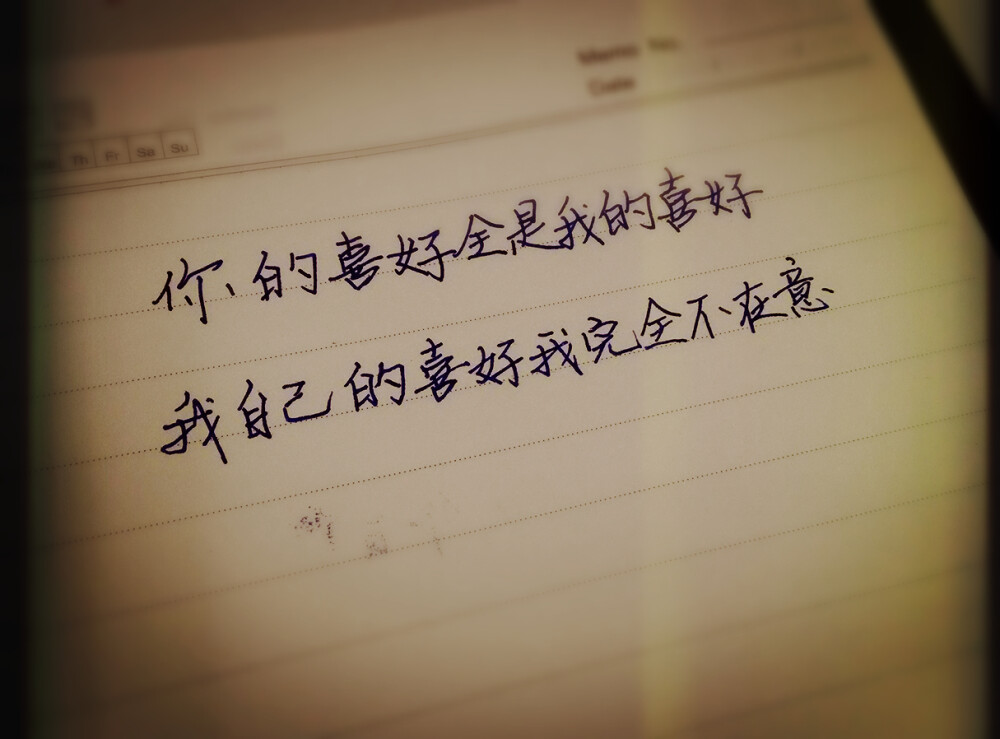 Memo No.
Date
Th Fr Sa Su
你的喜好全是我的喜好
我自己的喜好我完全不在意